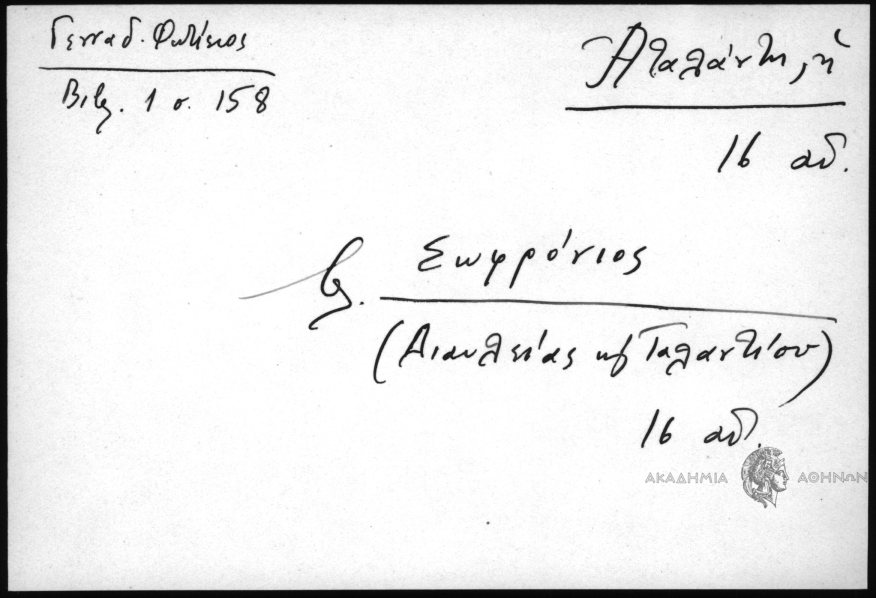 Γενναδ. Φωτίειος
Βιβλ. 1 σ. 158
Ἀταλάντη, ἡ
16 αἰ.
βλ. Σωφρόνιος
(Διαυλείας κ Ταλαντίου)
16 αἰ.
ΑΚΑΔΗΜΙΑ ΑΘΗΝΩΝ